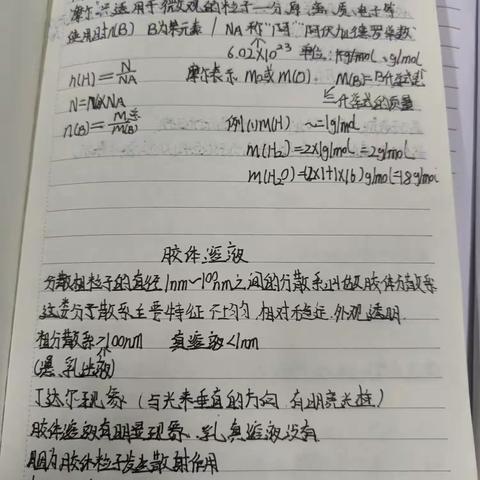 摩尔只适用于微观的粒子—分、原、离、质、电子等
使用时n(B) B为某元素 / NA称"阿"阿伏加德罗常数
6.02×10²³ 单位: kg/mol、g/mol
n(H)=N/NA 摩尔表示 M₀或m(O). M(B)=B化学式量
N=N×NA 化学式的质量
n(B)=M/M(B) 例(1)M(H) ~=1g/mol
m(H₂)=2×1g/mol =2g/mol
m(H₂O)=(2×1+1×16)g/mol=18g/mol
胶体溶液
分散粗粒子的直径1nm~100nm之间的分散系叫做胶体分散系
这类分子散系主要特征 不均匀,相对稳定,外观透明
粗分散系>100nm 真溶液<1nm
(悬、乳浊液)
丁达尔现象 (与光束垂直的方向 有明亮光柱)
胶体溶液有明显现象、乳真溶液没有
因为胶体粒子发生散射作用